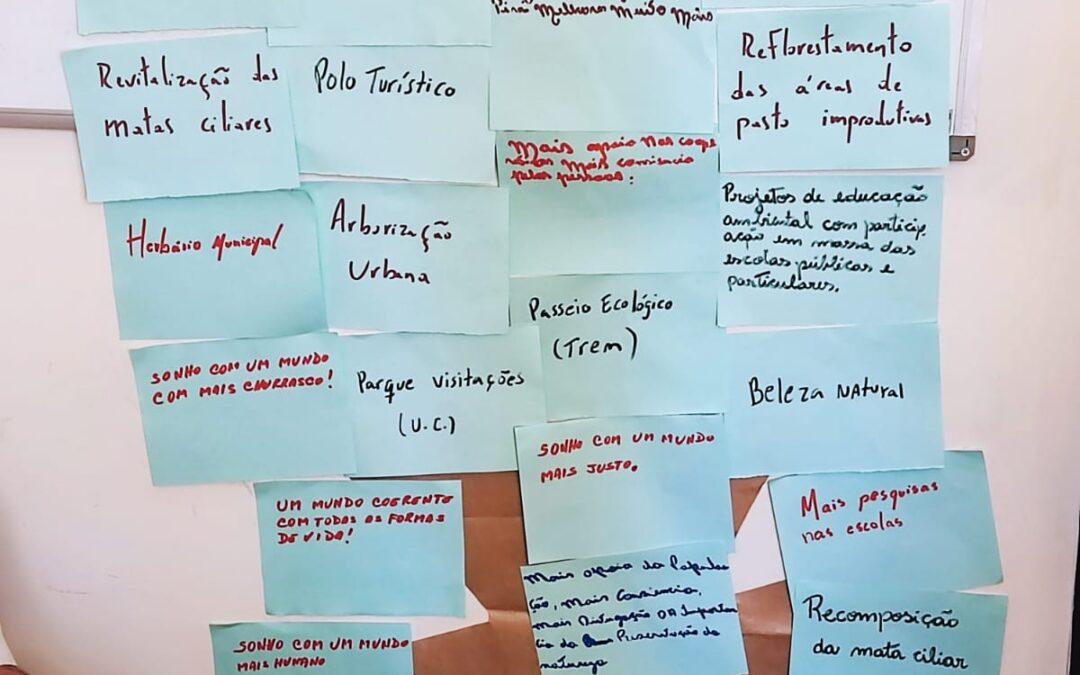 Revitalização das
matas ciliares
Polo Turístico
Melhorar Muito Mais
Reflorestamento
das áreas de
pasto improdutivas
Mais apoio nas
mais
pelas pessoas:
Herbário Municipal
Arborização
Urbana
Projetos de educação
ambiental com particip
ação em massa das
escolas públicas e
particulares.
Passeio Ecológico
(Trem)
SONHO COM UM MUNDO
COM MAIS CHURRASCO!
Parque visitações
(U.C.)
Beleza NAtural
SONHO COM UM MUNDO
MAIS JUSTO.
UM MUNDO COERENTE
COM TODAS AS FORMAS
DE VIDA!
Mais pesquisas
nas escolas
Mais apoio da Popula
ção, mais Consciencia,
mais Divulgação DA Importan
cia da Preservação da
natureza
Recomposição
da mata ciliar
SONHO COM UM MUNDO
MAIS HUMANO